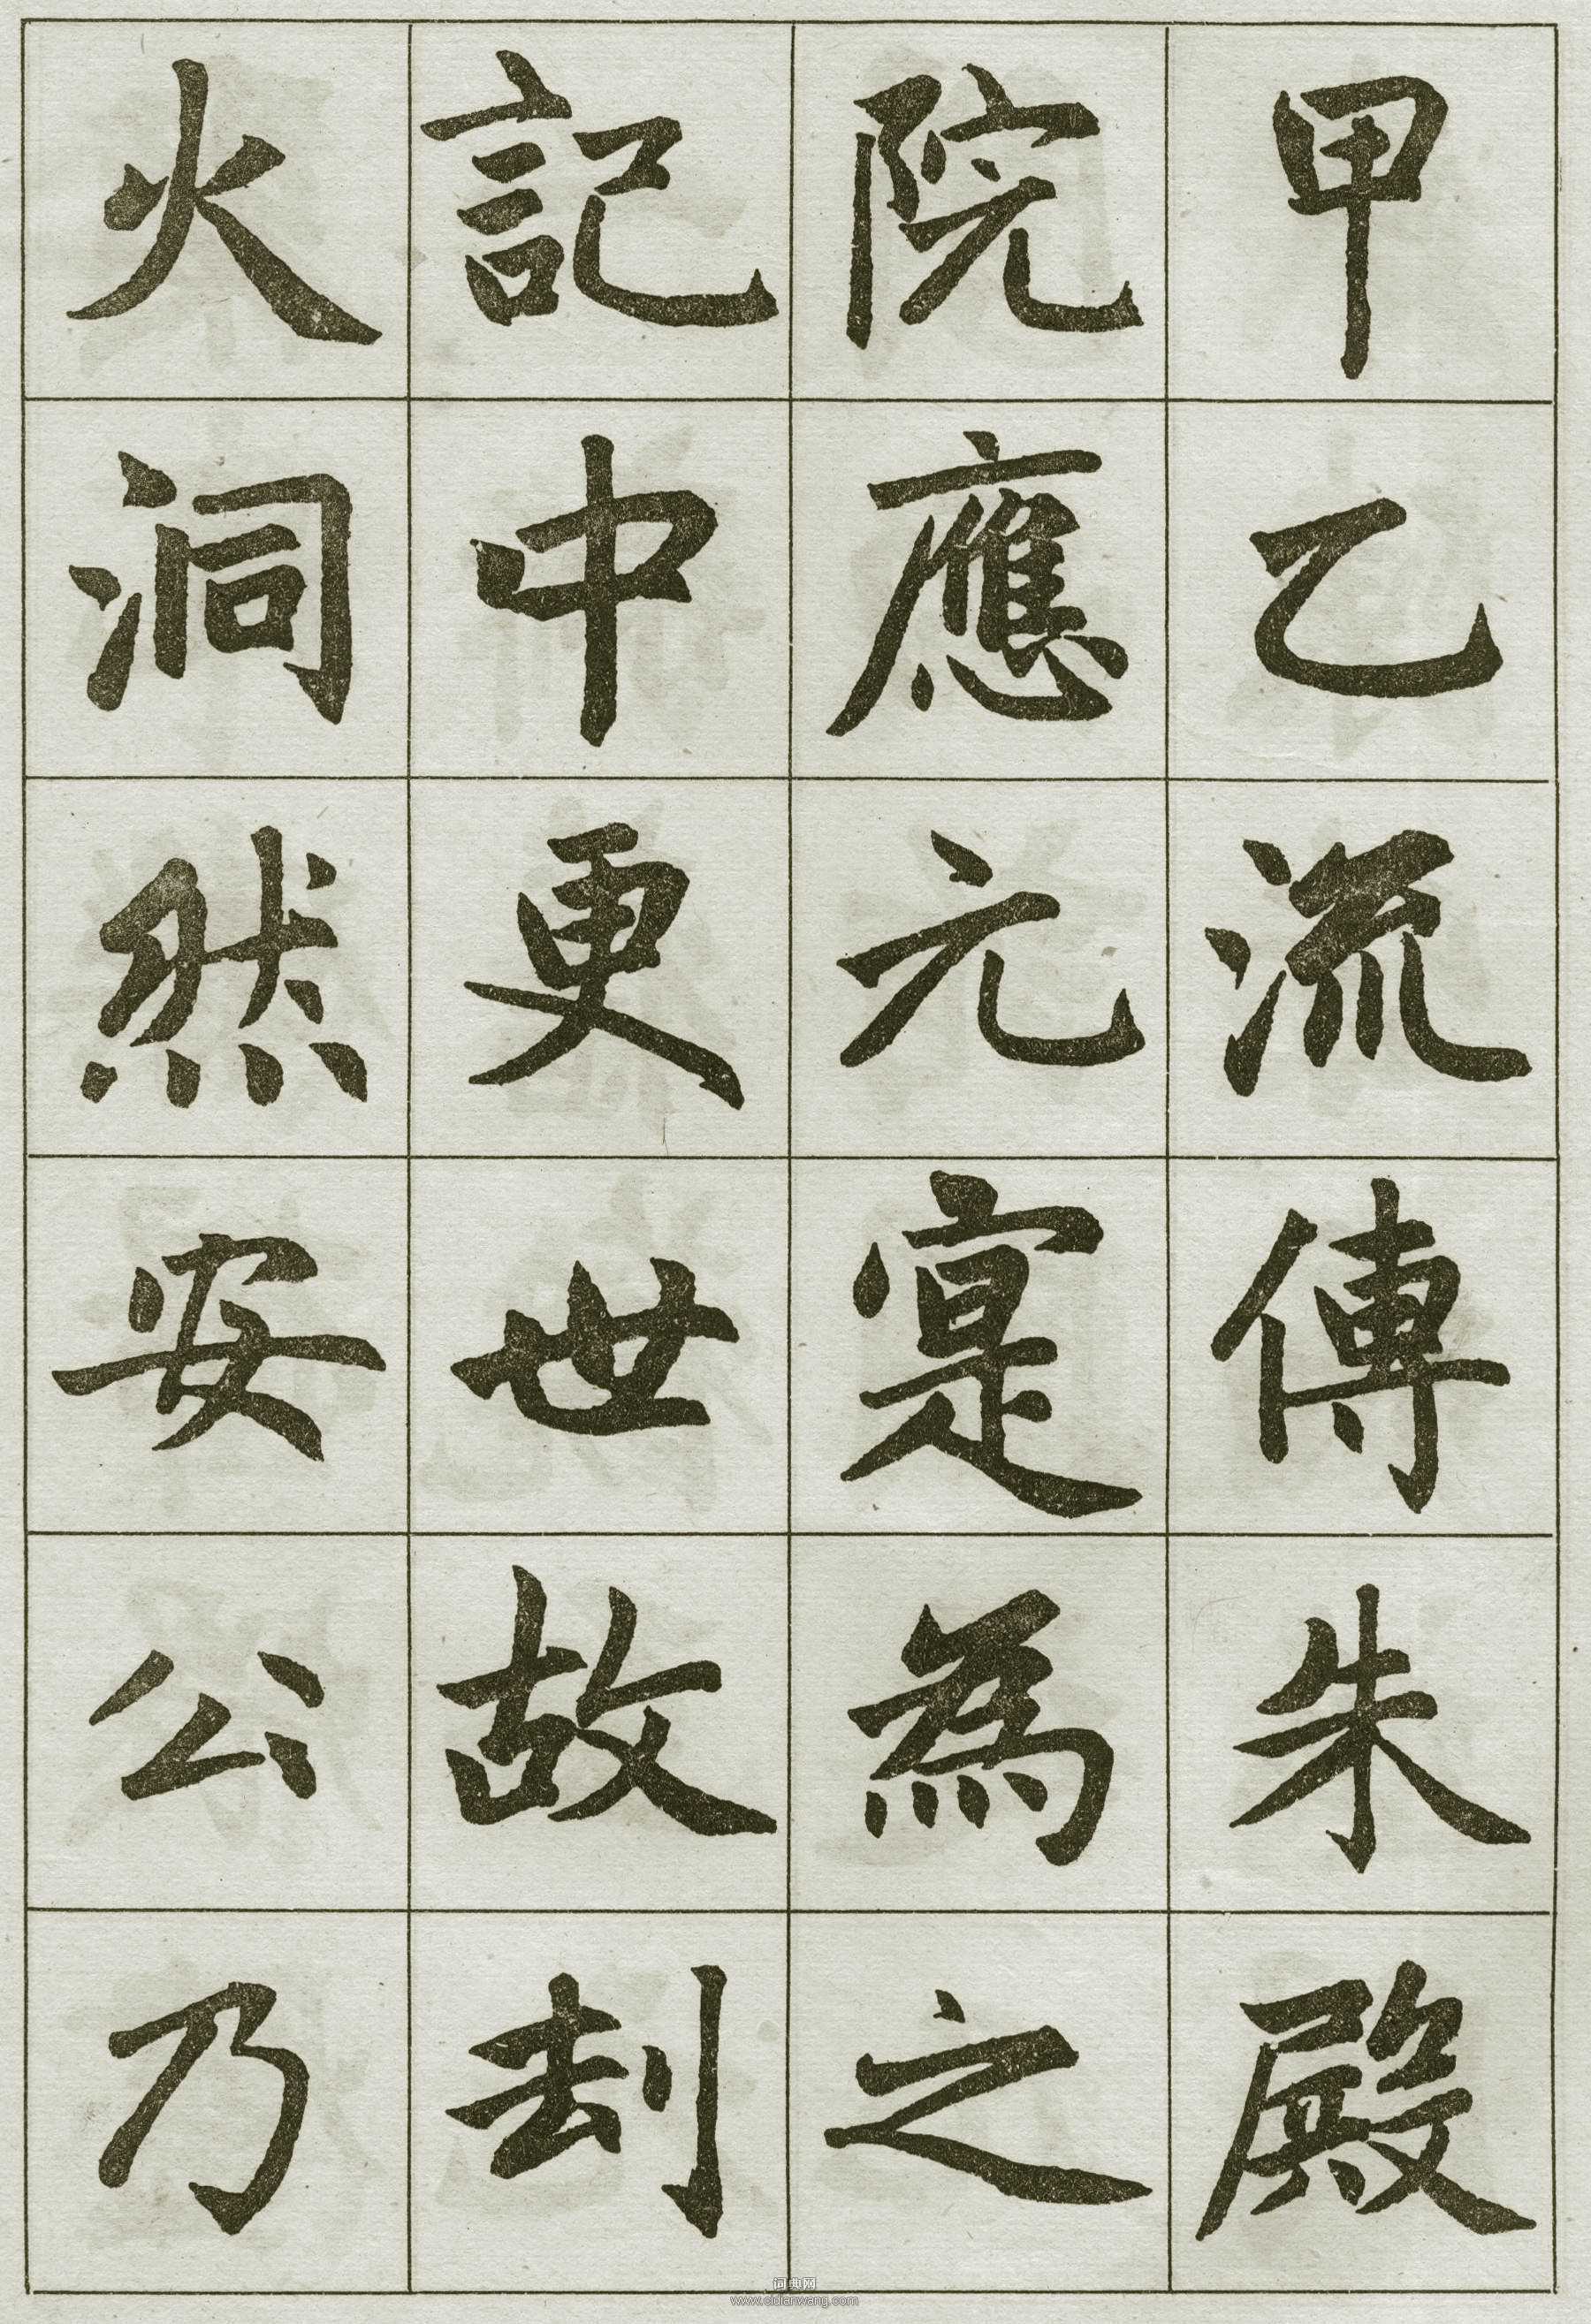 甲乙流傳朱殿
院應元寔為之
記中更世故刦
火洞然安公乃
词典网
www.cidianwang.com